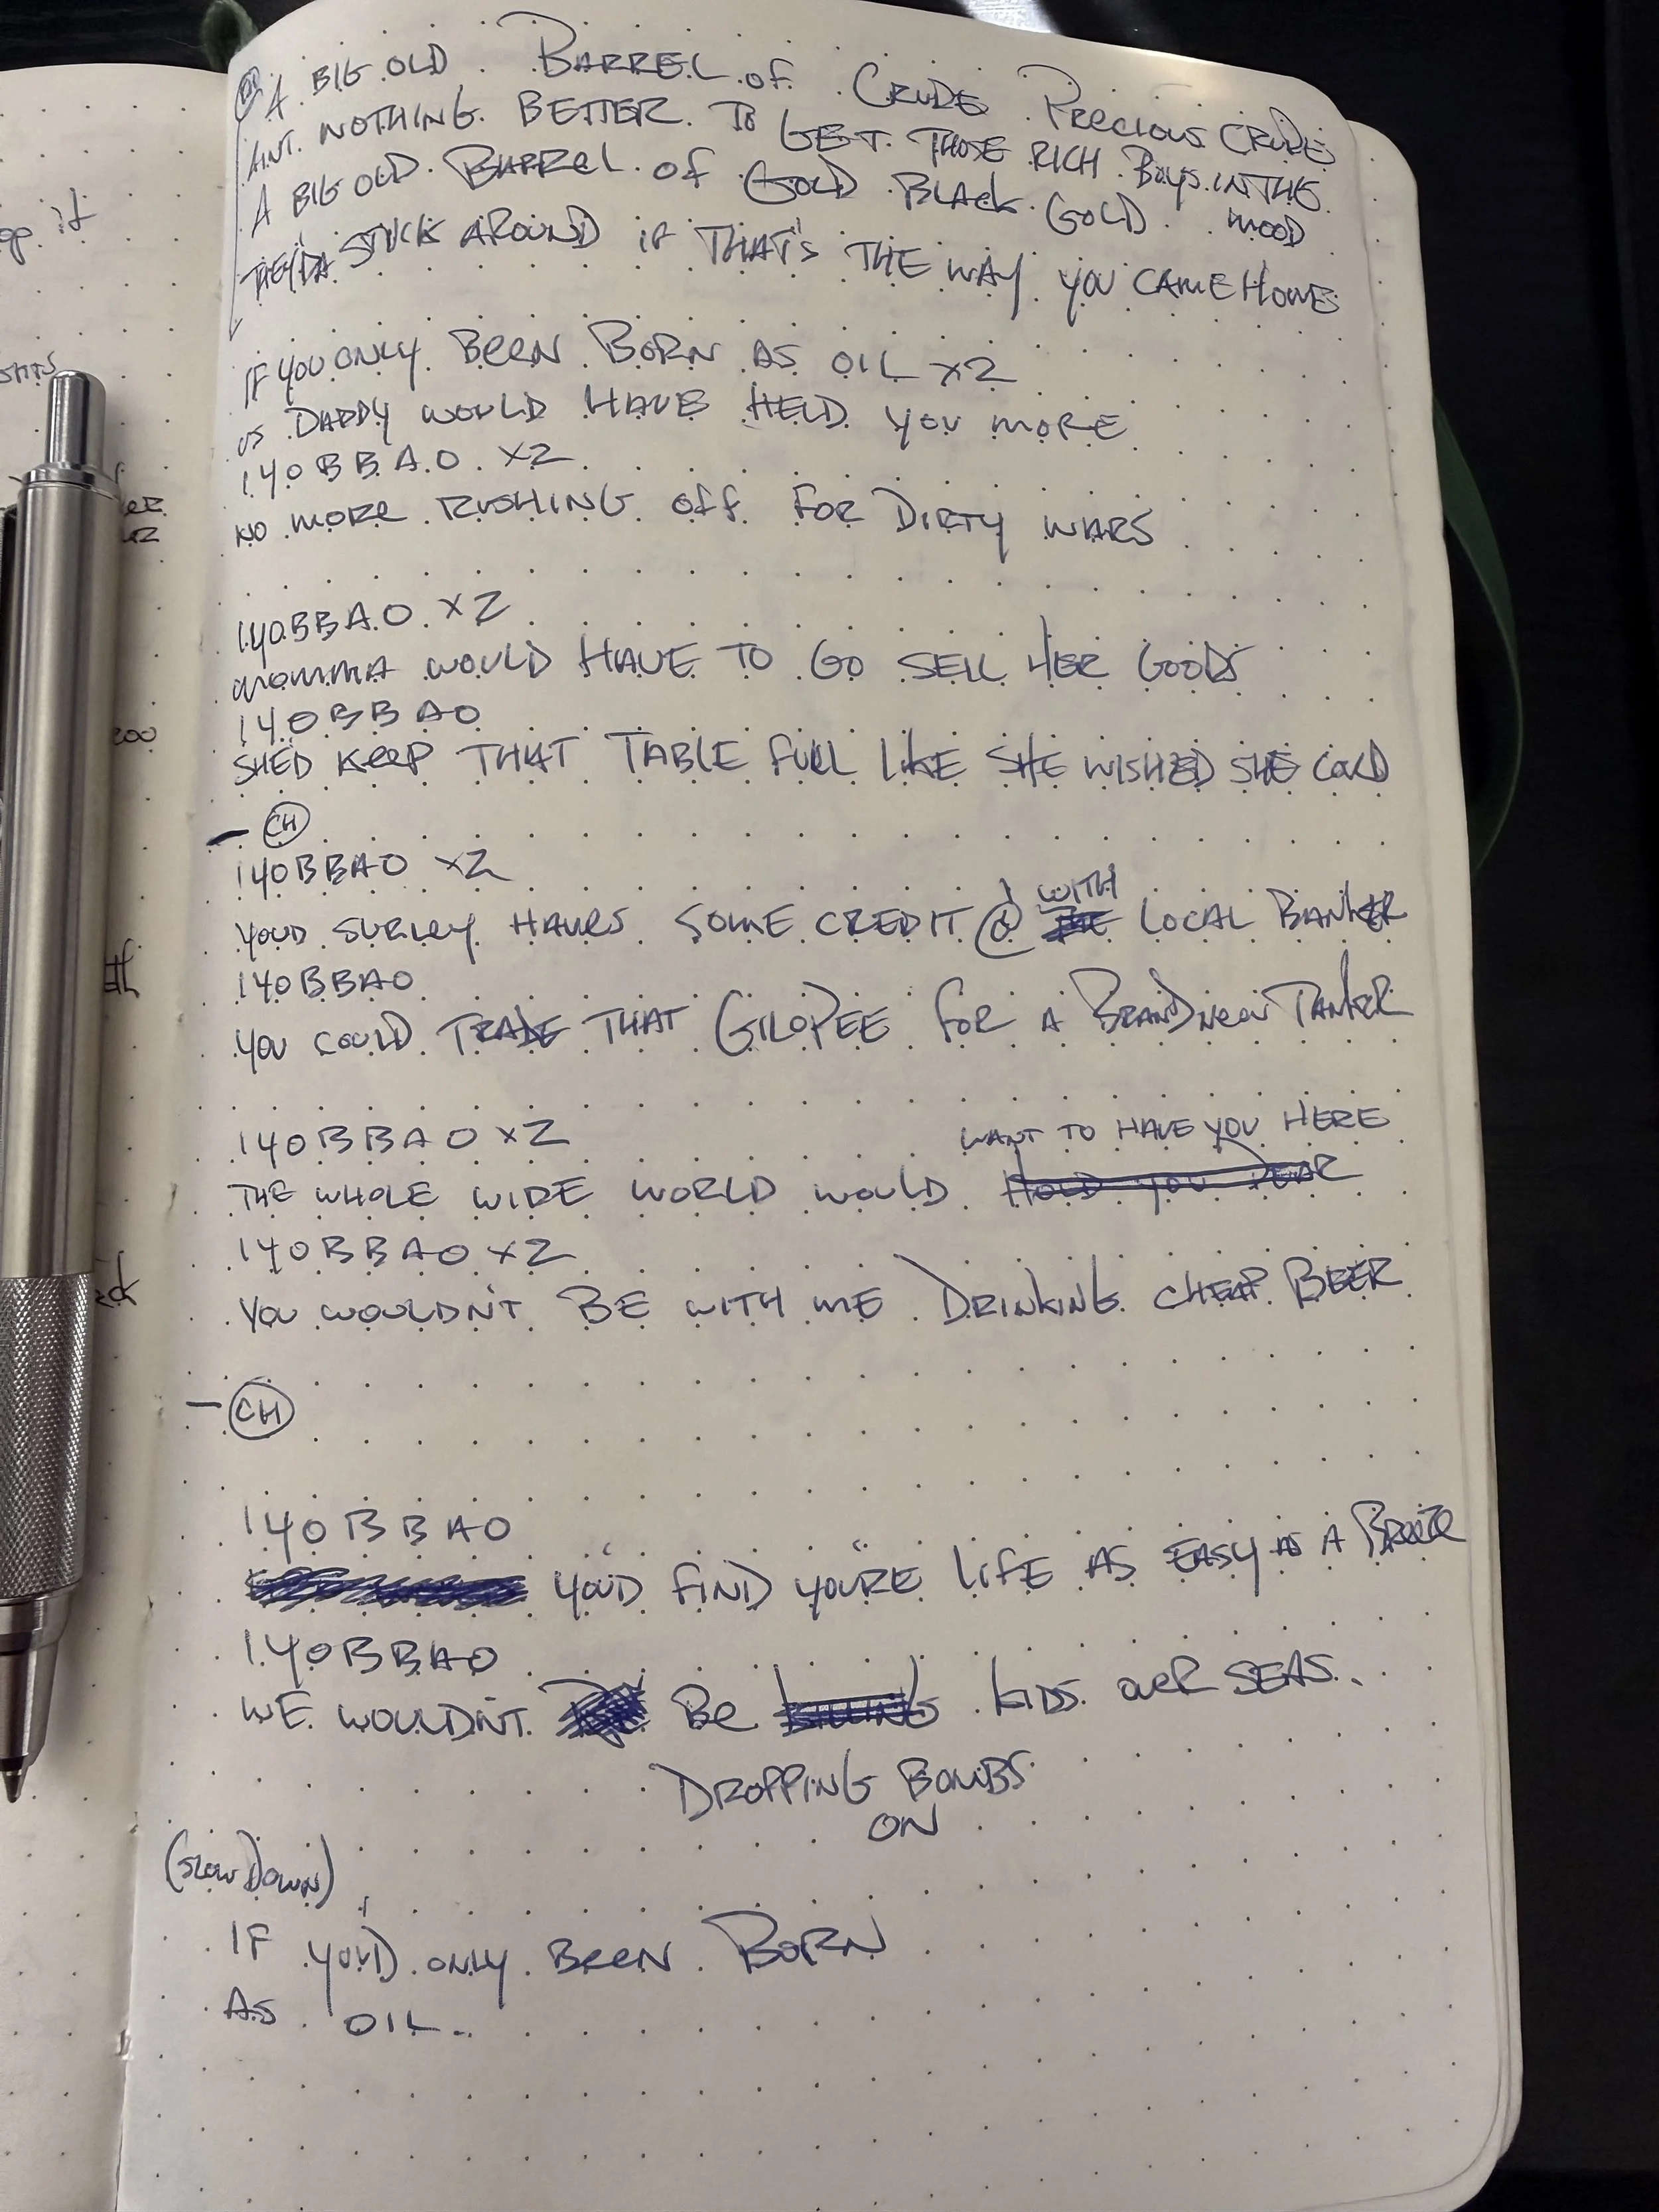 op it
shts
er
er
zoo
th
ck
CH
A BIG OLD BARREL of CRUDE PRECIOUS CRUDE
AINT NOTHING BETTER TO GET THOSE RICH BOYS IN THE MOOD
A BIG OLD BARREL of GOLD BLACK GOLD
THEY'DA STUCK AROUND if THAT'S THE WAY YOU CAME HOME
IF YOU ONLY BEEN BORN AS OIL x2
DADDY WOULD HAVE HELD YOU MORE
I Y O B B A O x2
NO MORE RUSHING Off FOR DIRTY WARS
I Y O B B A O x2
MOMMA WOULD HAVE TO GO SELL HER GOODS
I Y O B B A O
SHED KEEP THAT TABLE FULL LIKE SHE WISHED SHE COULD
- CH
I Y O B B A O x2
YOUD SURLEY HAVES SOME CREDIT @ WITH LOCAL BANKER
I Y O B B A O
YOU COULD TRADE THAT GILOPEE FOR A BRAND NEW TANKER
I Y O B B A O x2
WANT TO HAVE YOU HERE
THE WHOLE WIDE WORLD WOULD HOLD YOU DEAR
I Y O B B A O x2
YOU WOULDN'T BE WITH ME DRINKING CHEAP BEER
- CH
I Y O B B A O
YOU'D FIND YOU'RE LIFE AS EASY AS A BREEZE
I Y O B B A O
WE WOULDN'T BE KILLING KIDS OVER SEAS.
DROPPING BOMBS
ON
(SLOW DOWN)
IF YOU'D ONLY BEEN BORN
AS OIL..